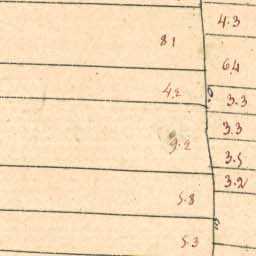 4.3
81
6.4
4.2
3.3
3.3
9.2
3.5
3.2
5.8
5.3